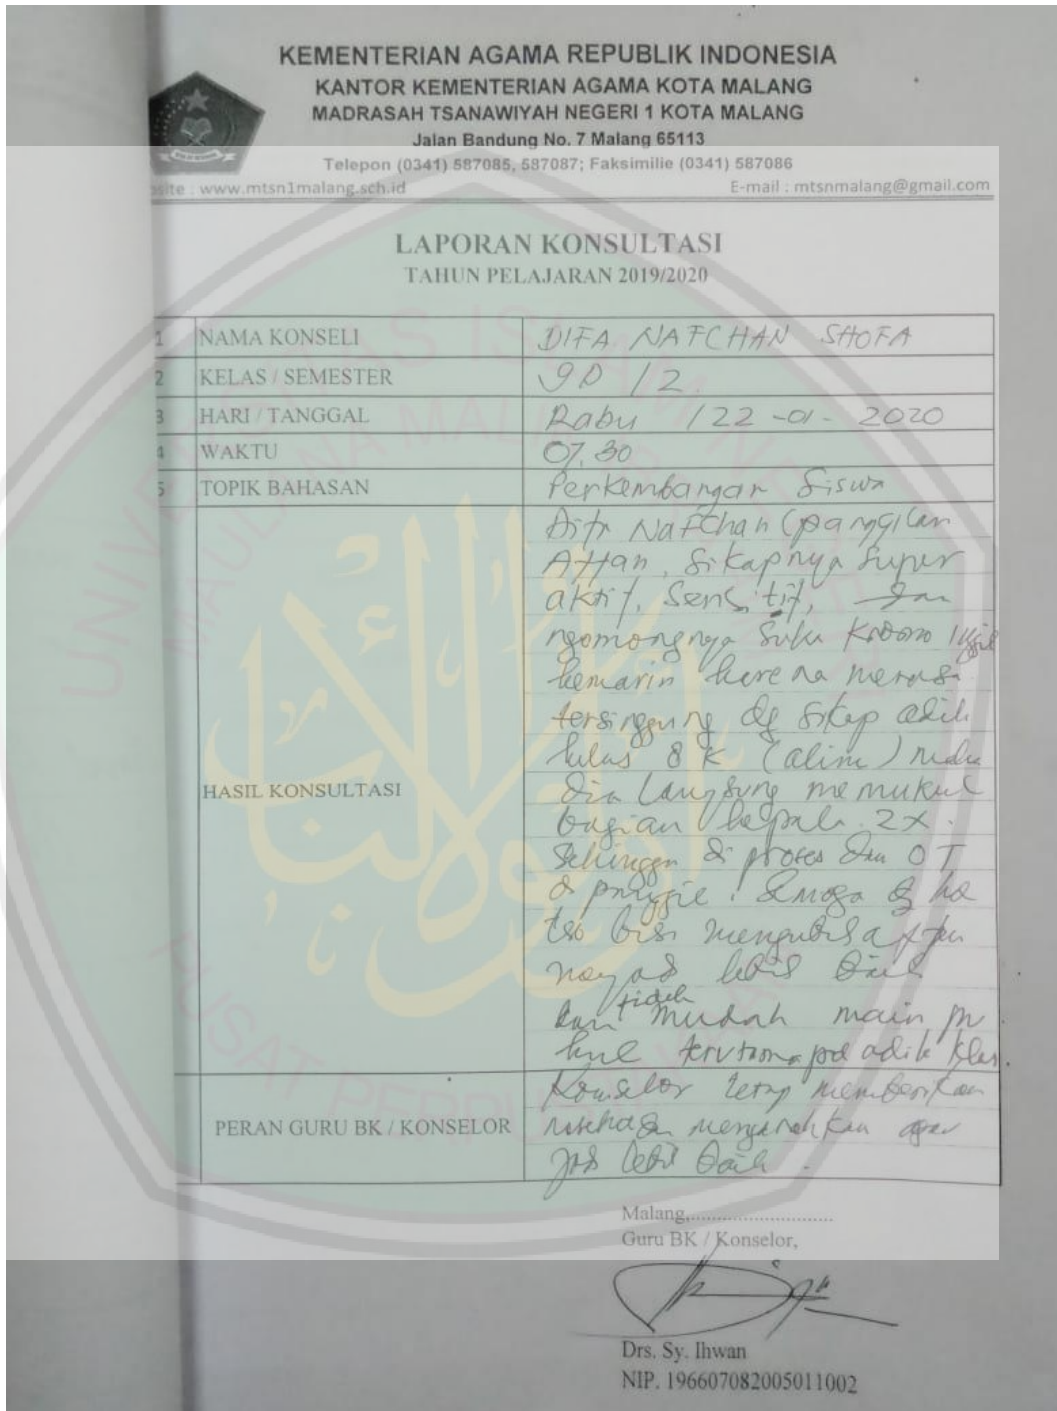 KEMENTERIAN AGAMA REPUBLIK INDONESIA
KANTOR KEMENTERIAN AGAMA KOTA MALANG
MADRASAH TSANAWIYAH NEGERI 1 KOTA MALANG
Jalan Bandung No. 7 Malang 65113
Telepon (0341) 587085, 587087; Faksimilie (0341) 587086
site : www.mtsn1malang.sch.id E-mail : mtsnmalang@gmail.com
LAPORAN KONSULTASI
TAHUN PELAJARAN 2019/2020
1 NAMA KONSELI DIFA NAFCHAN SHOFA
2 KELAS / SEMESTER 9D / 2
3 HARI / TANGGAL Rabu / 22 -01- 2020
4 WAKTU 07.30
5 TOPIK BAHASAN Perkembangan Siswa
HASIL KONSULTASI
Nafchan (panggilan
Attan, Sikapnya super
aktif, Sensitif, dan
ngomongnya suka
kemarin karena merasa
tersinggung dg sikap adik
kelas 8 K (alim) maka
dia langsung memukul
bagian kepala 2x.
Sehingga di proses dan OT
di panggil. Semoga dg
bisa
lebih baik
dan tidak mudah main pu
kul terutama pd adik klas.
PERAN GURU BK / KONSELOR
Konselor tetap memberikan
mengarahkan agar
jad lebih baik.
Malang,............................
Guru BK / Konselor,
Drs. Sy. Ihwan
NIP. 196607082005011002
UNIVERSITAS ISLAM NEGERI
MAULANA MALIK
PUSAT